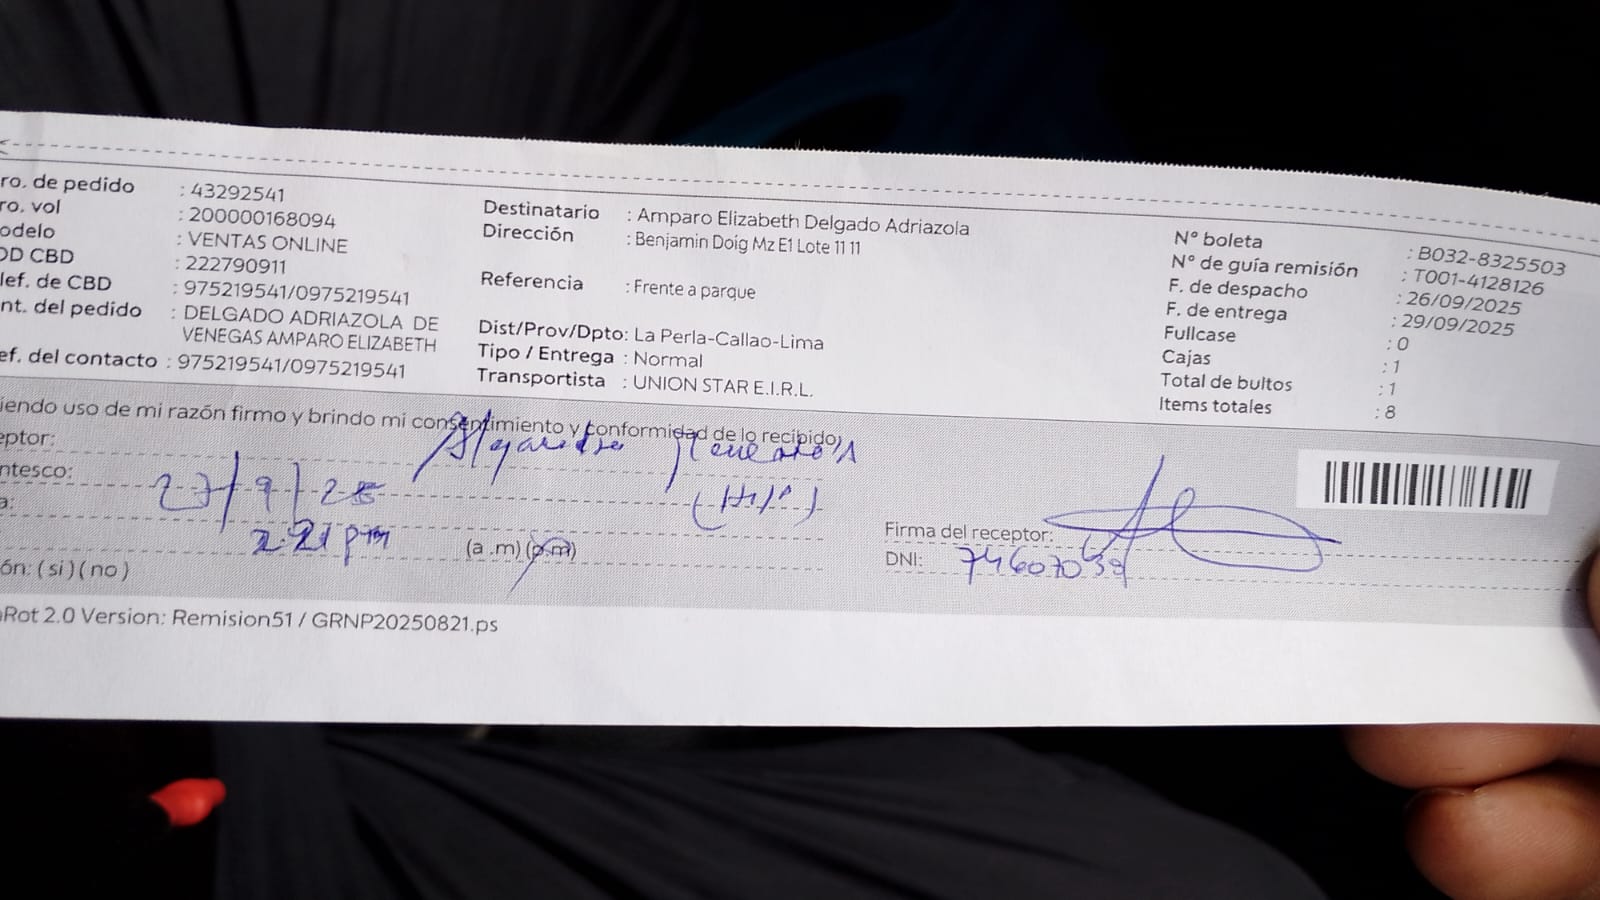 ro. de pedido : 43292541
ro. vol : 200000168094
odelo : VENTAS ONLINE
OD CBD : 222790911
lef. de CBD : 975219541/0975219541
nt. del pedido : DELGADO ADRIAZOLA DE
VENEGAS AMPARO ELIZABETH
ef. del contacto : 975219541/0975219541
Destinatario : Amparo Elizabeth Delgado Adriazola
Dirección : Benjamin Doig Mz E1 Lote 11 11
Referencia : Frente a parque
Dist/Prov/Dpto: La Perla-Callao-Lima
Tipo / Entrega : Normal
Transportista : UNION STAR E.I.R.L.
N° boleta : B032-8325503
N° de guía remisión : T001-4128126
F. de despacho : 26/09/2025
F. de entrega : 29/09/2025
Fullcase : 0
Cajas : 1
Total de bultos : 1
Items totales : 8
iendo uso de mi razón firmo y brindo mi consentimiento y conformidad de lo recibido
eptor:
ntesco:
a: 27/9/25
2:21 pm (a .m) (p.m)
ón: ( si ) ( no )
Firma del receptor:
DNI:
Rot 2.0 Version: Remision51 / GRNP20250821.ps